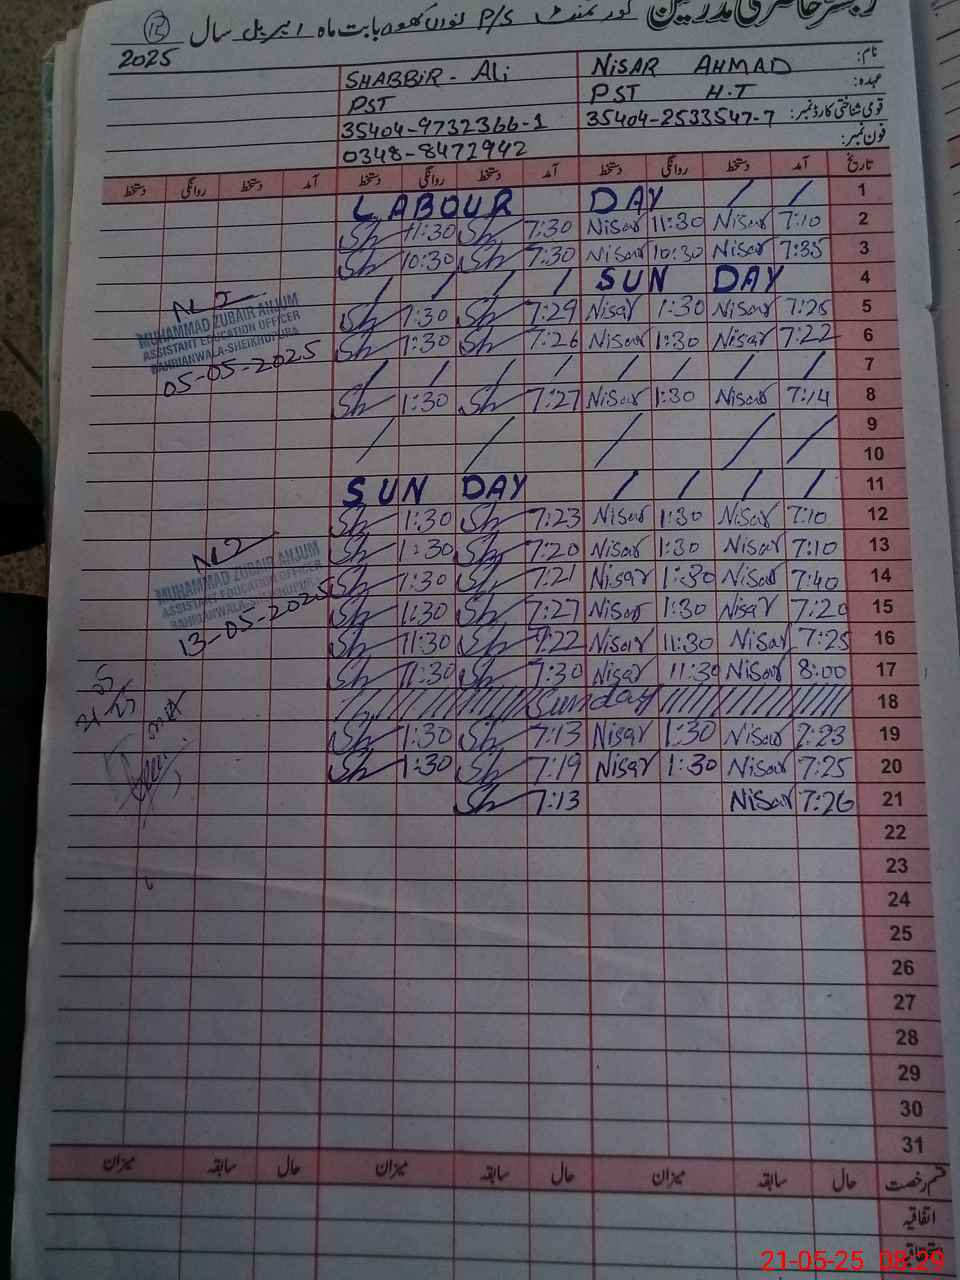 رجسٹر حاضری مدرسین
گورنمنٹ P/S بابت ماہ اپریل سال
2025
نام: NISAR AHMAD SHABBIR - Ali
عہدہ: PST H.T PST
قومی شناختی کارڈ نمبر: 35404-2533547-7 35404-9732366-1
فون نمبر: 0348-8472942
تاریخ آمد دستخط روانگی دستخط آمد دستخط روانگی دستخط آمد دستخط روانگی دستخط
LABOUR DAY / / 1
Sh 11:30 Sh 7:30 Nisar 11:30 Nisar 7:10 2
Sh 10:30 Sh 7:30 Nisar 10:30 Nisar 7:35 3
/ / / / SUN DAY 4
Sh 1:30 Sh 7:29 Nisar 1:30 Nisar 7:25 5
Sh 1:30 Sh 7:26 Nisar 1:30 Nisar 7:22 6
/ / / / / / / / 7
Sh 1:30 Sh 7:27 Nisar 1:30 Nisar 7:14 8
/ / / / / 9
10
SUN DAY / / / / 11
Sh 1:30 Sh 7:23 Nisar 1:30 Nisar 7:10 12
Sh 1:30 Sh 7:20 Nisar 1:30 Nisar 7:10 13
Sh 1:30 Sh 7:21 Nisar 1:30 Nisar 7:40 14
Sh 11:30 Sh 7:27 Nisar 1:30 Nisar 7:20 15
Sh 11:30 Sh 7:22 Nisar 11:30 Nisar 7:25 16
Sh 11:30 Sh 7:30 Nisar 11:30 Nisar 8:00 17
Sunday 18
Sh 1:30 Sh 7:13 Nisar 1:30 Nisar 7:23 19
Sh 1:30 Sh 7:19 Nisar 1:30 Nisar 7:25 20
Sh 7:13 Nisar 7:26 21
22
23
24
25
26
27
28
29
30
31
MUHAMMAD ZUBAIR ANJUM
ASSISTANT EDUCATION OFFICER
BAHRIANWALA-SHEIKHUPURA
05-05-2025
MUHAMMAD ZUBAIR ANJUM
ASSISTANT EDUCATION OFFICER
BAHRIANWALA-SHEIKHUPURA
13-05-2025
قسم رخصت حال سابقہ میزان حال سابقہ میزان حال سابقہ میزان
اتفاقیہ
21-05-25 08:29